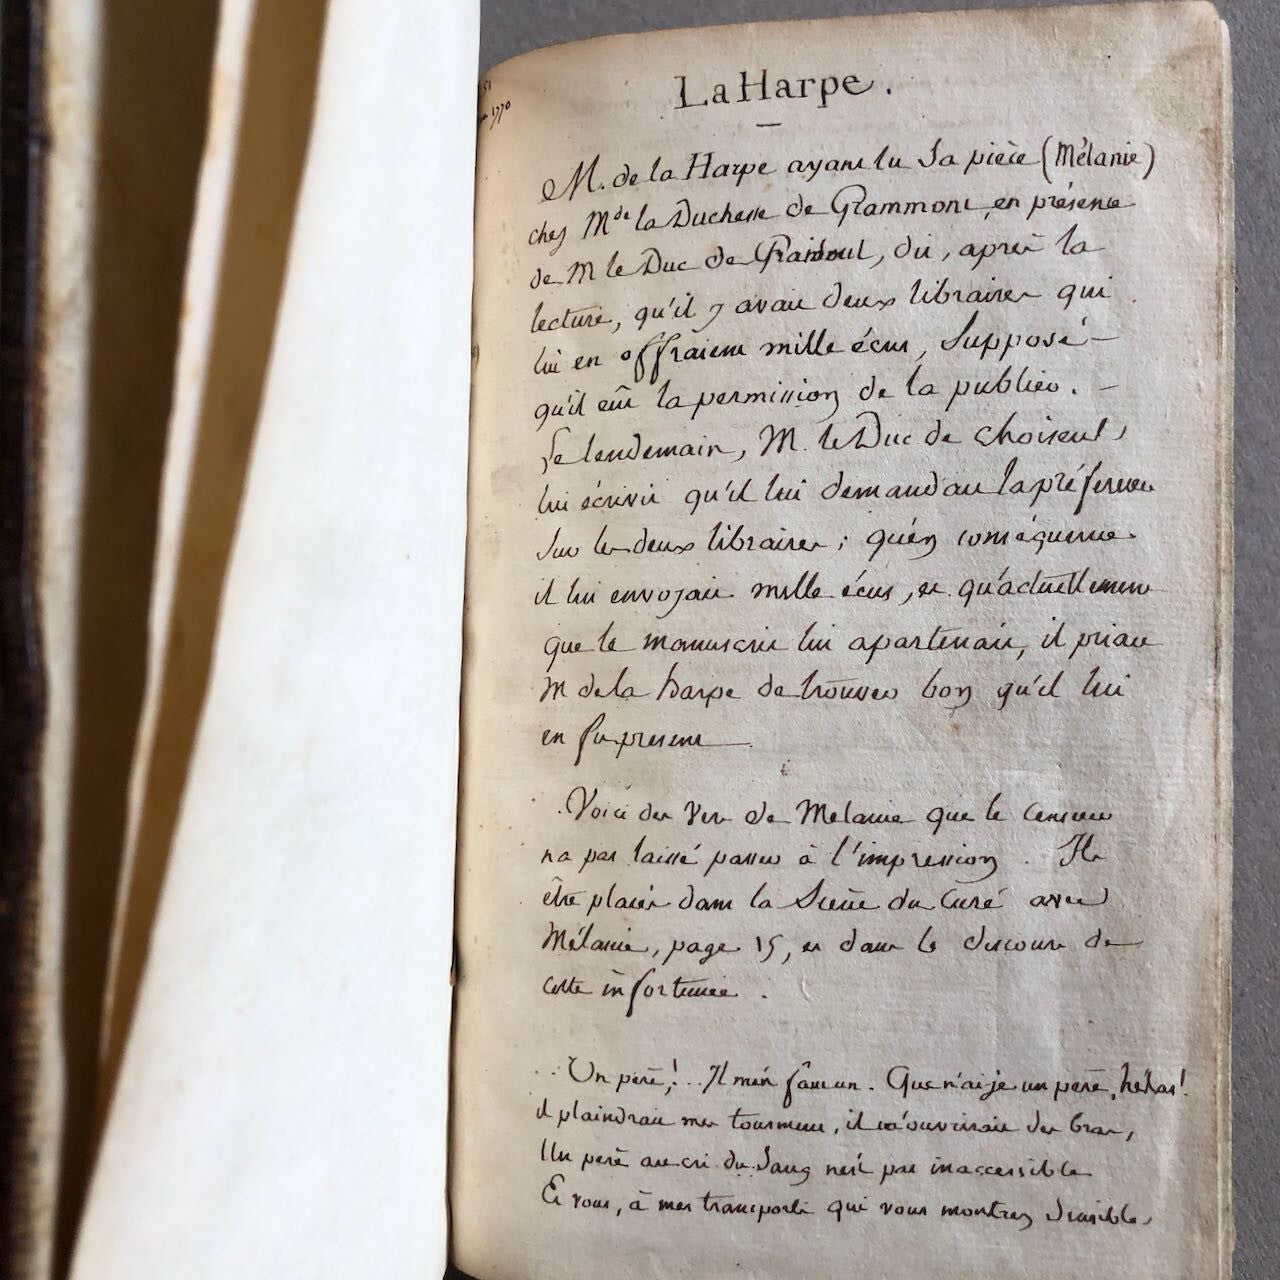 1770
La Harpe.
M. de la Harpe ayant lu Sa pièce (Mélanie)
chez Mde la Duchesse de Grammont, en présence
de M le Duc de, dit, après la
lecture, qu'il y avait deux libraires qui
lui en offraient mille écus, Supposé
qu'il eût la permission de la publier.
Le lendemain, M. le Duc de Choiseul,
lui écrivit qu'il lui demandait la préférence
Sur les deux libraires; qu'en conséquence
il lui envoyait mille écus, et qu'actuellement
que le manuscrit lui apartenait, il priait
M de la harpe de trouver bon qu'il lui
en fit present.
Voici des Vers de Mélanie que le Censeur
n'a pas laissé passer à l'impression. Ils
être placés dans la Scène du Curé avec
Mélanie, page 15, et dans le discours de
cette infortunée.
.. Un père!.. Il m'en faut un. Que n'ai je un père, hélas!
il plaindrait mes tourmens, il m'ouvrirait des bras,
Un père au cri du Sang n'est pas inaccessible
Et vous, à mes transports qui vous montrez Sensible,